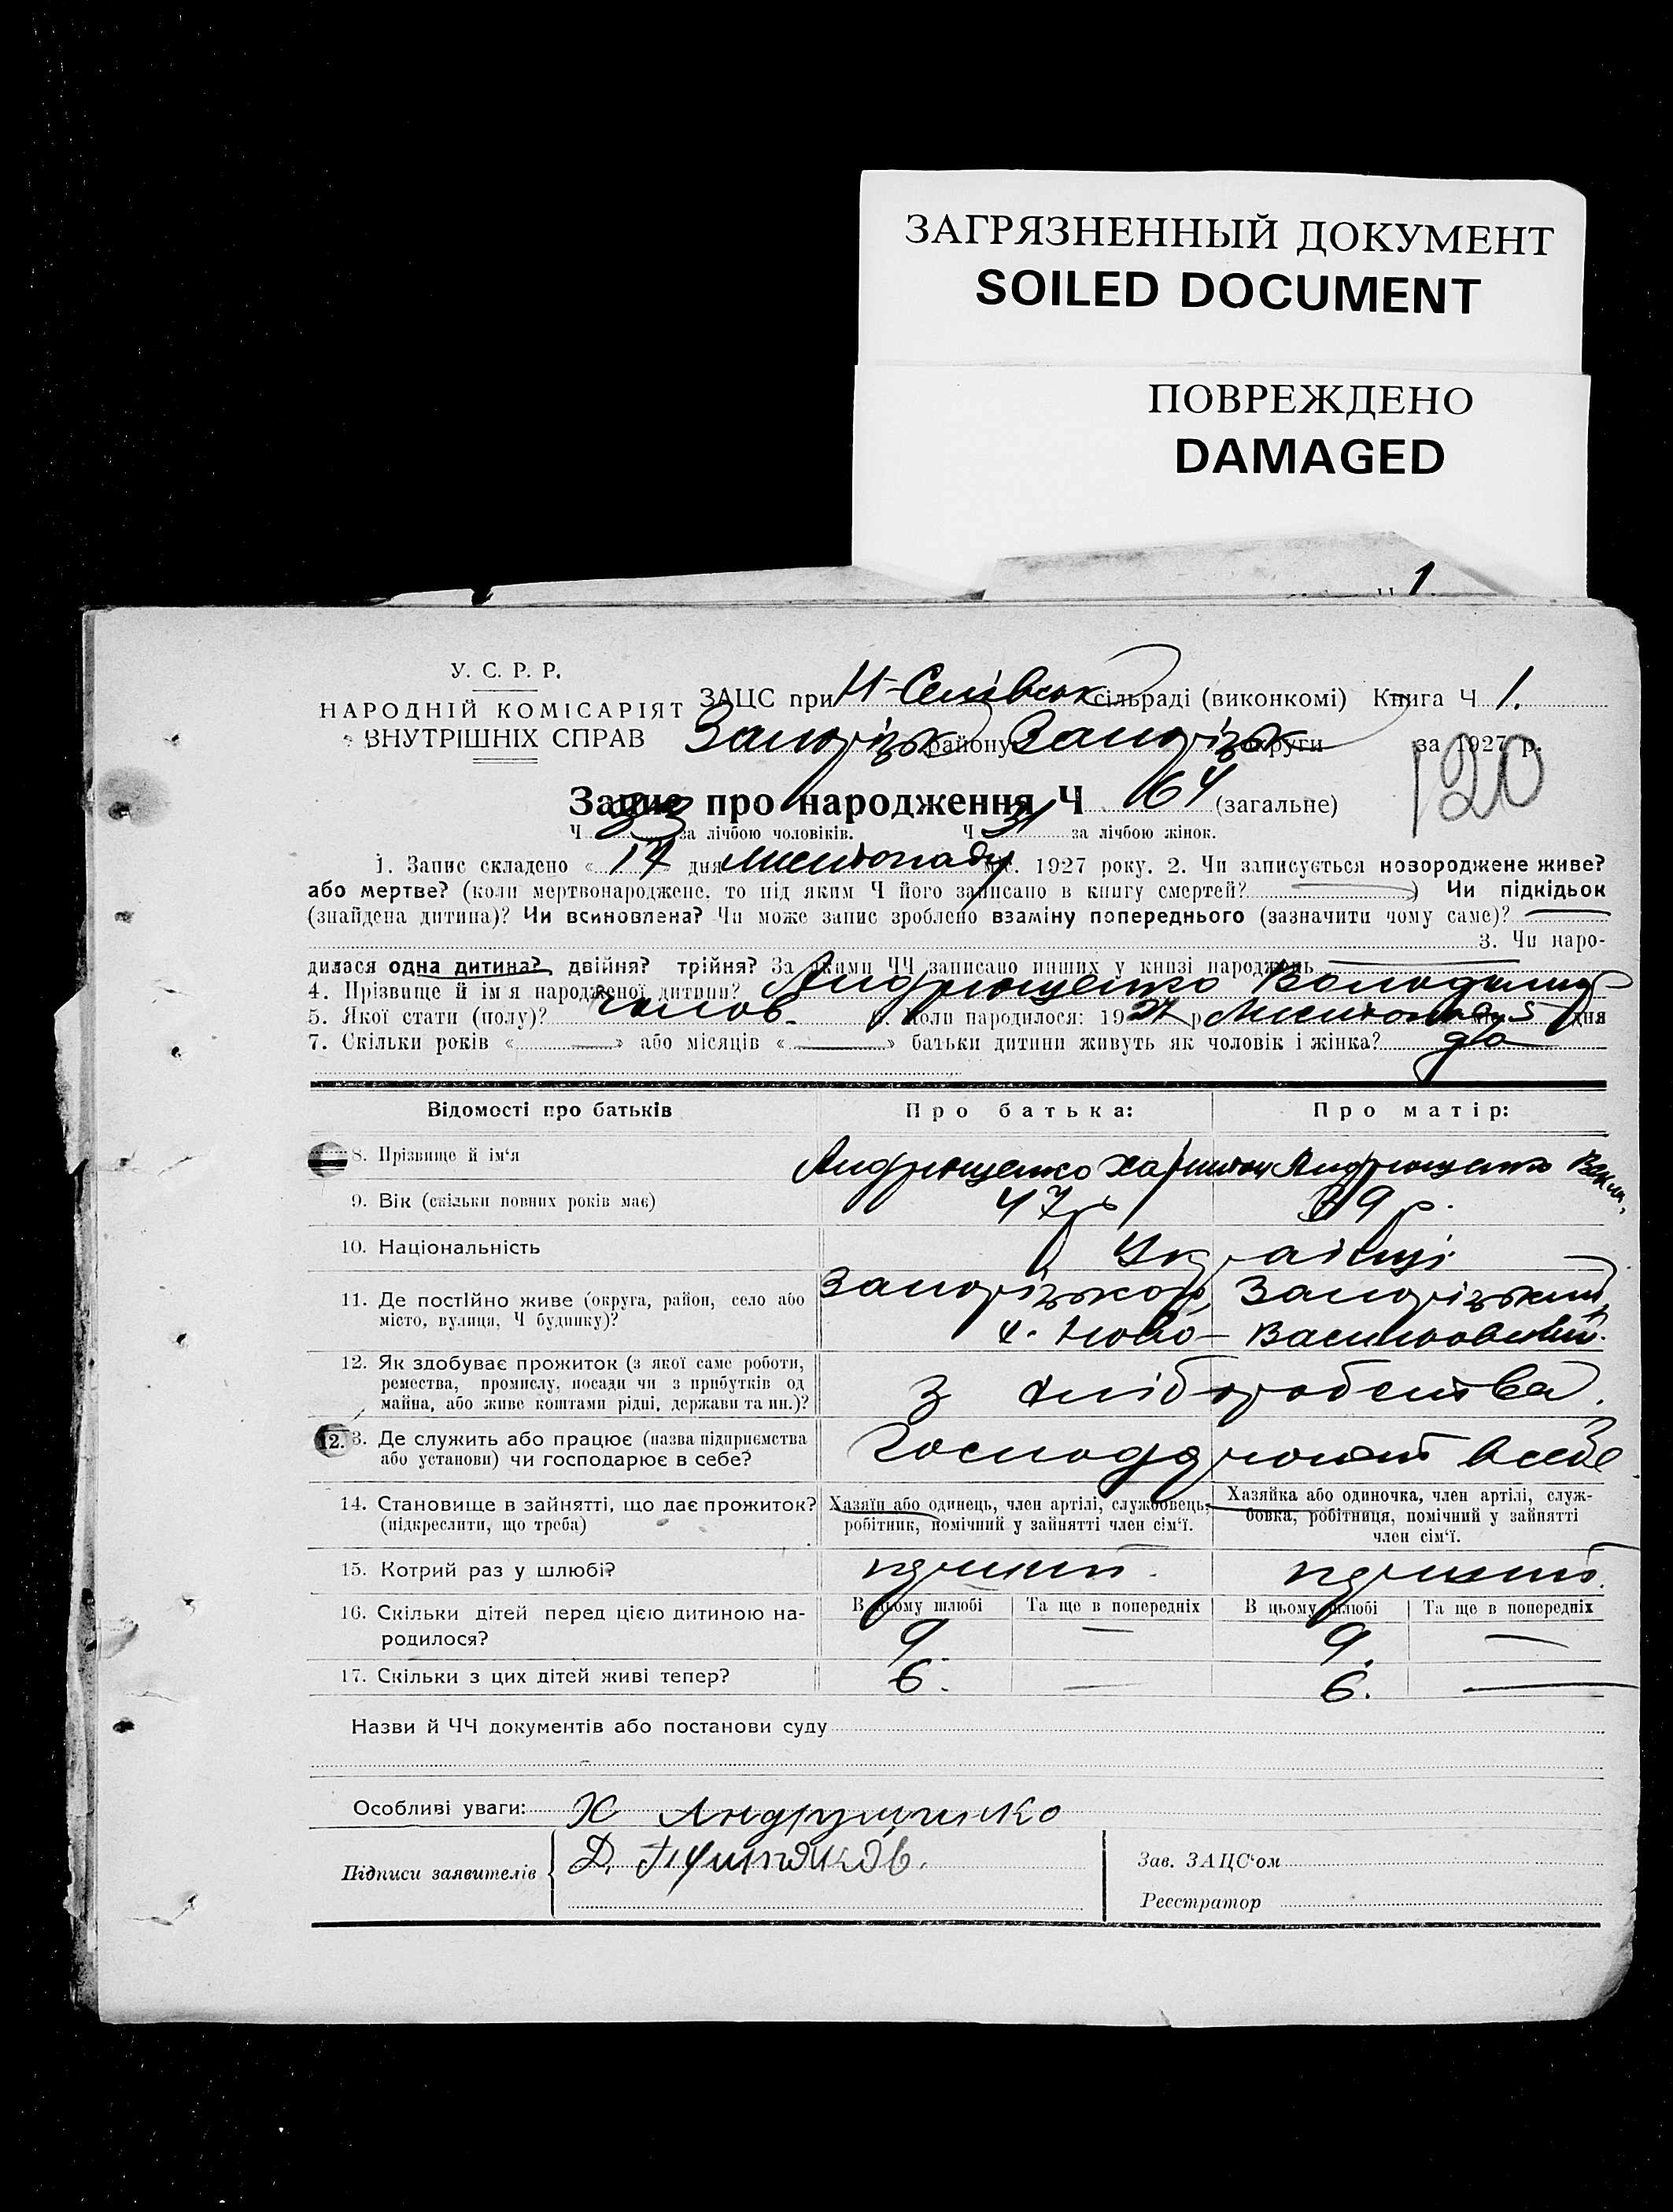 ЗАГРЯЗНЕННЫЙ ДОКУМЕНТ
SOILED DOCUMENT
ПОВРЕЖДЕНО
DAMAGED
1
У. С. Р. Р.
НАРОДНІЙ КОМІСАРІЯТ
ВНУТРІШНІХ СПРАВ
ЗАЦС при сільраді (виконкомі) Книга Ч 1.
Запорізьк району Запорізьк округи за 1927 р.
120
Запис про народження Ч 64 (загальне)
Ч 33 за лічбою чоловіків. Ч 31 за лічбою жінок.
1. Запис складено « 17 » дня Листопаду міс. 1927 року. 2. Чи записується новороджене живе?
або мертве? (коли мертвонароджене, то під яким Ч його записано в книгу смертей? —) Чи підкідьок
(знайдена дитина)? Чи всиновлена? Чи може запис зроблено взаміну попереднього (зазначити чому саме)? —
3. Чи наро-
дилася одна дитина? двійня? трійня? За якими ЧЧ записано инших у книзі народжень —
4. Прізвище й ім'я народженої дитини? Андрющенко Володимир
5. Якої стати (полу)? чолов. 6. Коли народилося: 1927 р Листопаду 5 дня
7. Скільки років «—» або місяців «—» батьки дитини живуть як чоловік і жінка?
Відомості про батьків Про батька: Про матір:
8. Прізвище й ім'я Андрющенко Харитон Андрющенко
9. Вік (скільки повних років має) 47 р. 39 р.
10. Національність Українці
11. Де постійно живе (округа, район, село або
місто, вулиця, Ч будинку)?
Запорізької, Запорізький,
Ново-
12. Як здобуває прожиток (з якої саме роботи,
ремества, промислу, посади чи з прибутків од
майна, або живе коштами рідні, держави та ин.)?
З хліборобства.
12. 3. Де служить або працює (назва підприємства
або установи) чи господарює в себе?
Господарюють в себе
14. Становище в зайнятті, що дає прожиток?
(підкреслити, що треба)
Хазяїн або одинець, член артілі, службовець,
робітник, помічний у зайнятті член сім'ї.
Хазяйка або одиночка, член артілі, служ-
бовка, робітниця, помічний у зайнятті
член сім'ї.
15. Котрий раз у шлюбі? перший. перший.
16. Скільки дітей перед цією дитиною на-
родилося?
В цьому шлюбі Та ще в попередніх В цьому шлюбі Та ще в попередніх
9 — 9. —
17. Скільки з цих дітей живі тепер? 6. — 6. —
Назви й ЧЧ документів або постанови суду
Особливі уваги: Х Андрущинко
Підписи заявителів Д.
Зав. ЗАЦС'ом
Реєстратор